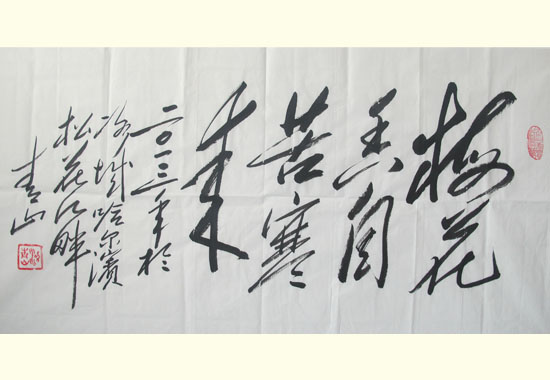 梅花
香自
苦寒
来
二〇一三年於
冰城哈尔滨
松花江畔
青山